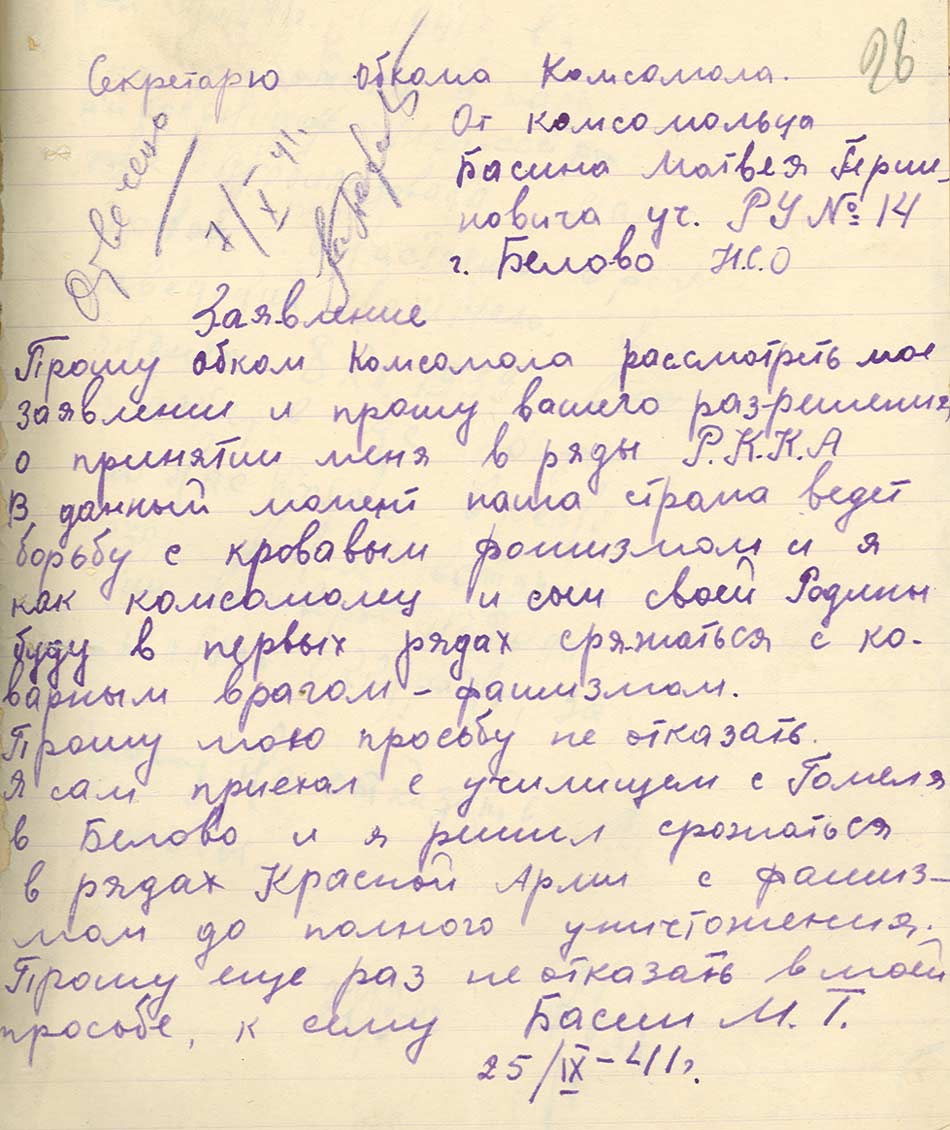 28
Секретарю обкома Комсомола.
От комсомольца
Басина Матвея
новича уч. РУ № 14
г. Белово Н.С.О
7/X 41г.
Заявление
Прошу обком Комсомола рассмотреть мое
заявление и прошу вашего разрешения,
о принятии меня в ряды Р.К.К.А
В данный момент наша страна ведет
борьбу с кровавым фашизмом и я
как комсомолец и сын своей Родины
буду в первых рядах сряжаться с ко-
варным врагом - фашизмом.
Прошу мою просьбу не отказать.
Я сам приехал с училищем с Гомеля
в Белово и я решил срожаться
в рядах Красной Армии с фашиз-
мом до полного уничтожения.
Прошу еще раз не отказать в моей
просьбе, к сему Басин М. Г.
25/IX-41г.